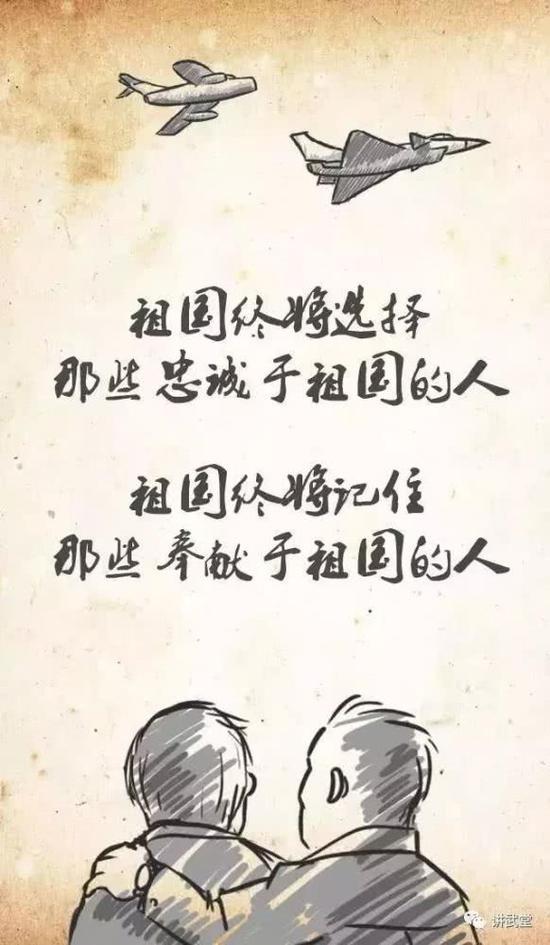 祖国终将选择
那些忠诚于祖国的人
祖国终将记住
那些奉献于祖国的人
讲武堂